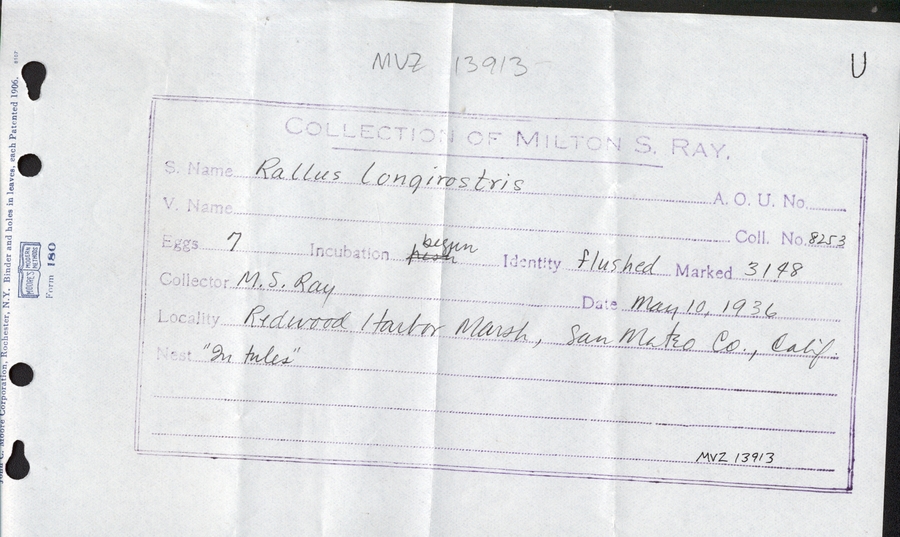 MVZ 13913
U
COLLECTION OF MILTON S. RAY.
S. Name Rallus longirostris A. O. U. No.
V. Name Coll. No. 8253
Eggs 7 Incubation begun Identity flushed Marked 3198
Collector M. S. Ray Date May 10, 1936
Locality Redwood Harbor Marsh, San Mateo Co., Calif.
Nest "In tules"
MVZ 13913
John C. Moore Corporation, Rochester, N.Y. Binder and holes in leaves, each Patented 1906.
MOORE'S MODERN METHODS
Form 180